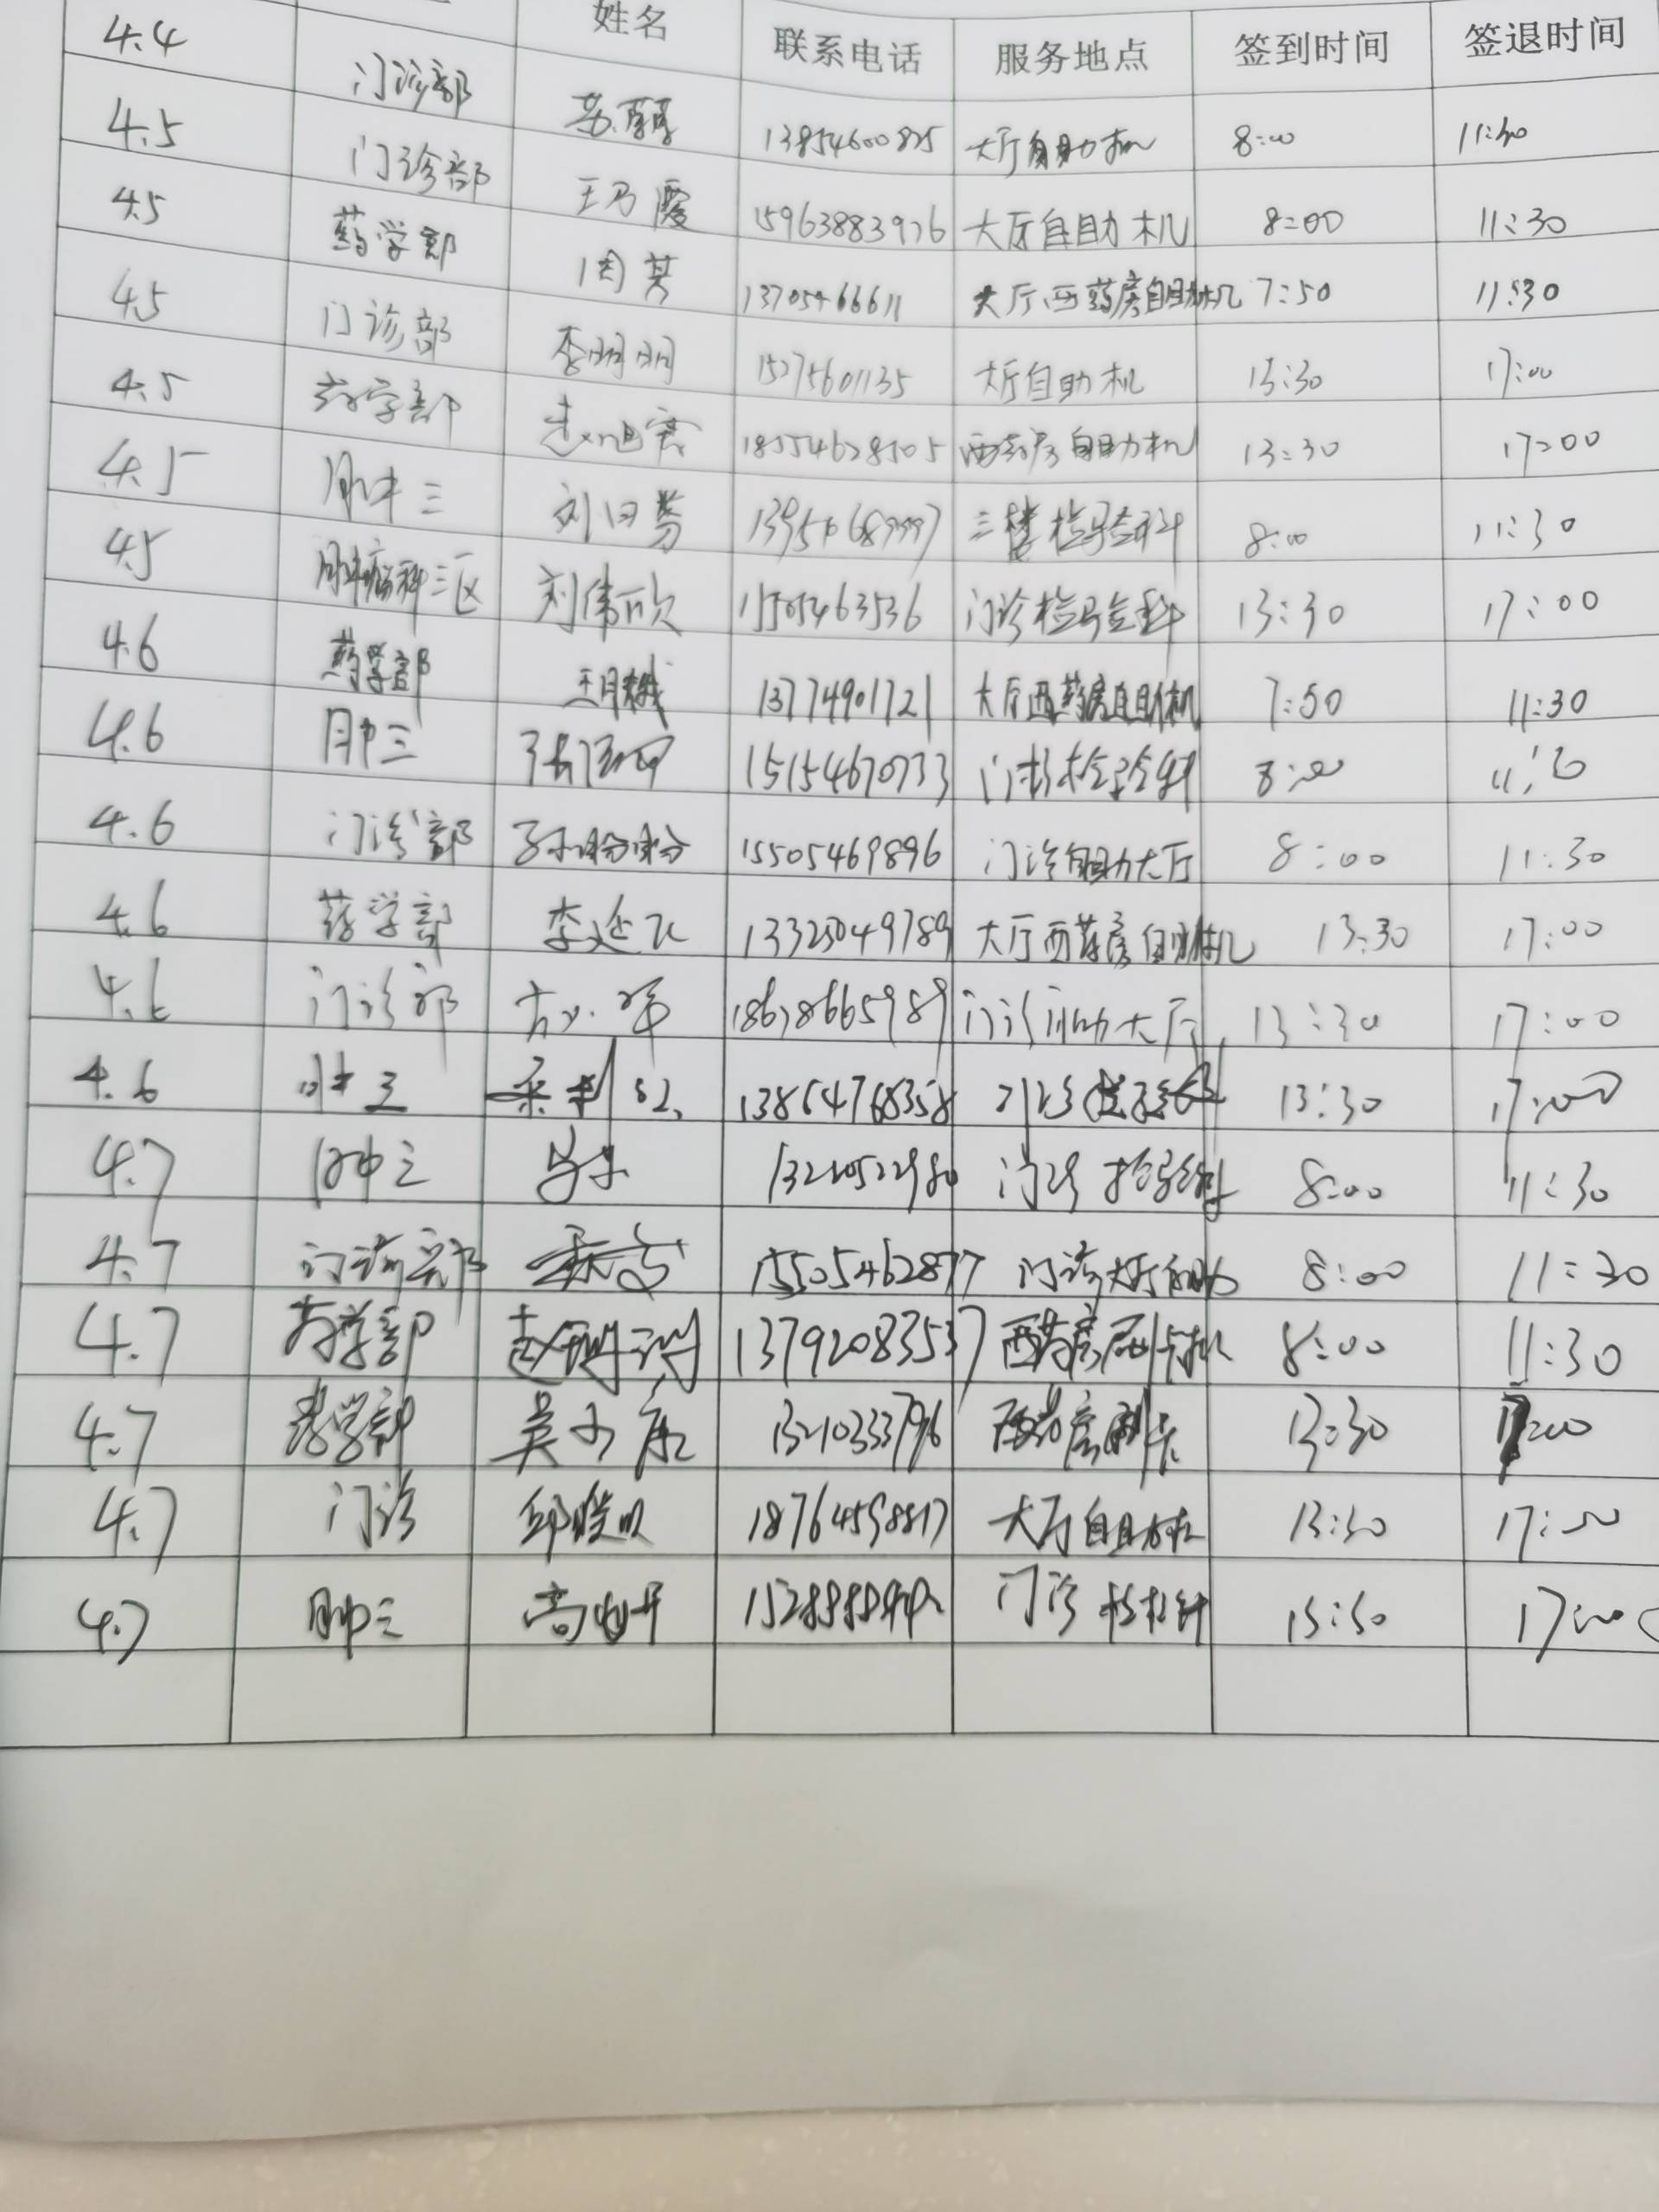 姓名 联系电话 服务地点 签到时间 签退时间
4.4 门诊部 大厅自助机 8:00 11:30
4.5 门诊部 王乃霞 15963883926 大厅自助机 8:00 11:30
4.5 药学部 13705466611 大厅西药房自助机 7:50 11:30
4.5 门诊部 李明明 15275601135 大厅自助机 13:30 17:00
4.5 药学部 西药房自助机 13:30 17:00
4.5 肿三 三楼检验科 8:00 11:30
4.5 肿瘤科三区 刘伟欣 15505463536 门诊检验科 13:30 17:00
4.6 药学部 13774901721 大厅西药房自助机 7:50 11:30
4.6 肿三 15154670733 门诊检验科 8:00
4.6 门诊部 孙盼盼 15505469896 门诊自助大厅 8:00 11:30
4.6 药学部 李延飞 13325049789 大厅西药房自助机 13:30 17:00
4.6 门诊部 18678665989 门诊自助大厅 13:30 17:00
4.6 肿三 13864768358 门诊检验科 13:30 17:00
4.7 肿三 门诊检验科 8:00 11:30
4.7 门诊部 15505462877 门诊大厅自助 8:00 11:30
4.7 药学部 赵珊珊 13792083537 西药房刷卡机 8:00 11:30
4.7 药学部 13210333796 西药房刷卡 13:30 17:00
4.7 门诊 18764598817 大厅自助机 13:30 17:00
4.7 肿三 门诊 13:30 17:00